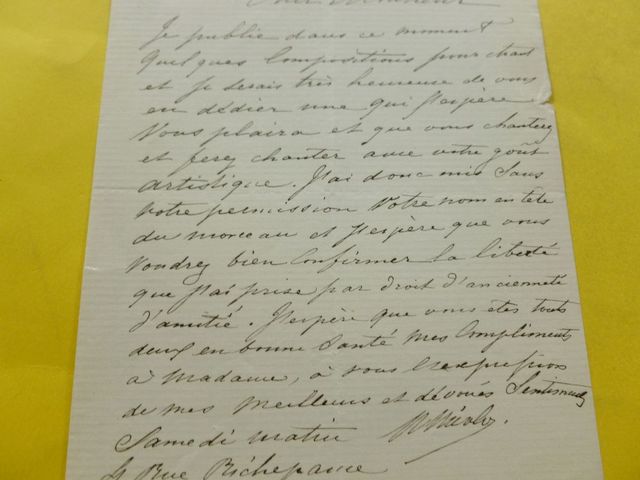 Cher Monsieur
Je publie dans ce moment
quelques Compositions pour chant
et je serais très heureuse de vous
en dédier une qui j'espère
vous plaira et que vous chanterez
et ferez chanter avec votre goût
artistique. J'ai donc mis sans
votre permission votre nom en tête
du morceau et j'espère que vous
voudrez bien confirmer la liberté
que j'ai prise par droit d'ancienneté
d'amitié. J'espère que vous êtes touts
deux en bonne Santé mes Compliments
à Madame, à vous l'expression
de mes meilleurs et dévoués Sentiments
Samedi matin
4 Rue Richepance